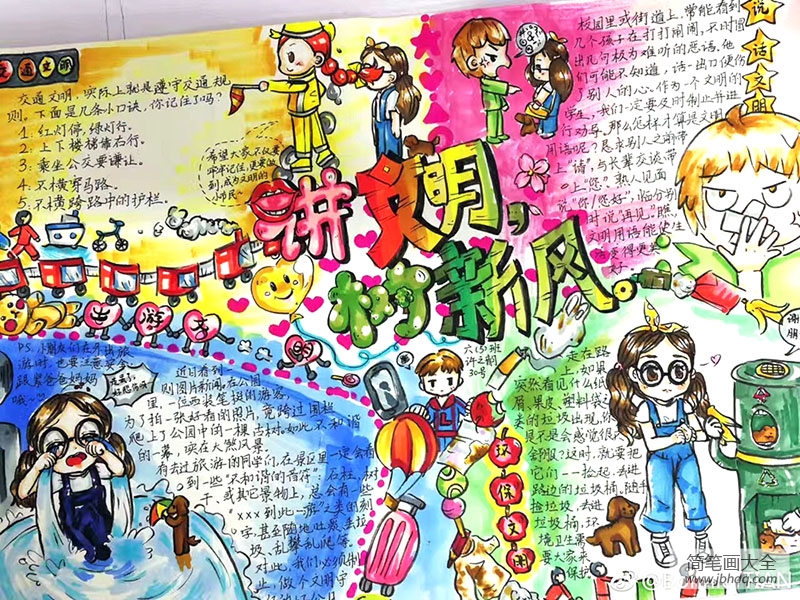 交通文明
交通文明,实际上就是遵守交通规
则。下面是几条小口诀,你记住了吗?
1. 红灯停,绿灯行。
2. 上下楼梯靠右行。
3. 乘坐公交要谦让。
4. 不横穿马路。
5. 不横跨路中的护栏。
希望大家不仅要
牢牢记住,更要做
到,成为文明的
小市民。
讲文明,
树新风。
说话文明
校园里或街道上,常能看到
几个孩子在打打闹闹,不时冒
出几句极为难听的恶语。他
们可能不知道,话一出口便伤
了别人的心。作为一个文明的
学生,我们一定要及时制止并进
行劝导。那么怎样才算是文明
用语呢?恳求别人之前带
上"请",与长辈交谈带
上"您"?熟人见面
说"你/您好",临分别
时说"再见"
文明用语能使生
活变得更
出游文明
P.S. 小朋友们在外出旅
游时,也要注意安全,
跟紧爸爸妈妈
哦~
近日看到一
则图片新闻,在公园
里,一位西装笔挺的游客,
为了拍一张好看的图片,竟跨过围栏
爬上了公园中的一棵古树。如此不和谐
的一幕,实在大煞风景。
有去过旅游的同学们,在景区里一定会看
到一些"不和谐的音符":石柱、树
干、或其它景物上,总会有一些
×××到此一游之类的刻
字,甚至随地吐痰、丢垃
圾、乱攀乱爬等。
对此,我们必须制
止,做个文明守
六(5)班
30号
环保文明
走在路
上,如果
突然看见什么纸
屑、果皮、塑料袋之
类的垃圾出现,你
是不是会感觉很
呢?这时,就要把
它们一一捡起,丢进
路边的垃圾桶,随手
捡垃圾,丢进
垃圾桶,环
境卫生需
要大家来
保护
谢谢
朋
简笔画大全
www.jbhdq.com